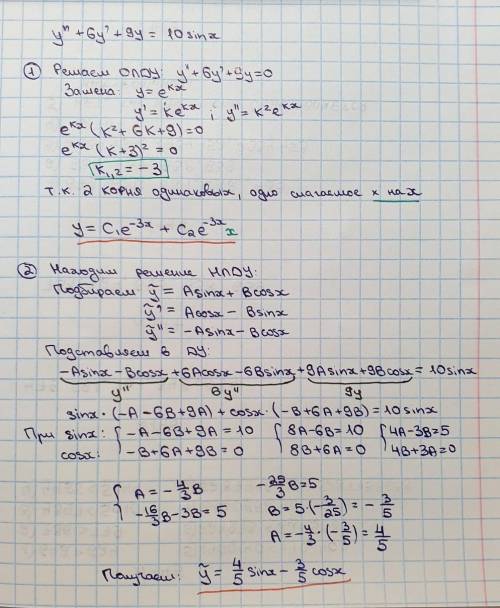 y" + 6y' + 9y = 10sinx
① Решаем ОЛДУ: y" + 6y' + 9y = 0
Замена: y = e^{kx}
y' = ke^{kx} ; y" = k²e^{kx}
e^{kx}(k² + 6k + 9) = 0
e^{kx}(k+3)² = 0
k₁,₂ = -3
т.к. 2 корня одинаковых, одно слагаемое × на x
y = C₁e^{-3x} + C₂e^{-3x} x
② Находим решение НЛДУ:
Подбираем ỹ = Asinx + Bcosx
ỹ' = Acosx - Bsinx
ỹ" = -Asinx - Bcosx
Подставляем в ДУ:
-Asinx - Bcosx + 6Acosx - 6Bsinx + 9Asinx + 9Bcosx = 10sinx
y" 6y" 9y
sinx·(-A-6B+9A) + cosx·(-B+6A+9B) = 10sinx
При sinx: { -A-6B+9A = 10 { 8A-6B=10 { 4A-3B=5
cosx: -B+6A+9B = 0 8B+6A=0 4B+3A=0
{ A = -4/3 B -25/3 B = 5
-16/3 B - 3B = 5 B = 5·(-3/25) = -3/5
A = -4/3·(-3/5) = 4/5
Получаем: ỹ = 4/5 sinx - 3/5 cosx